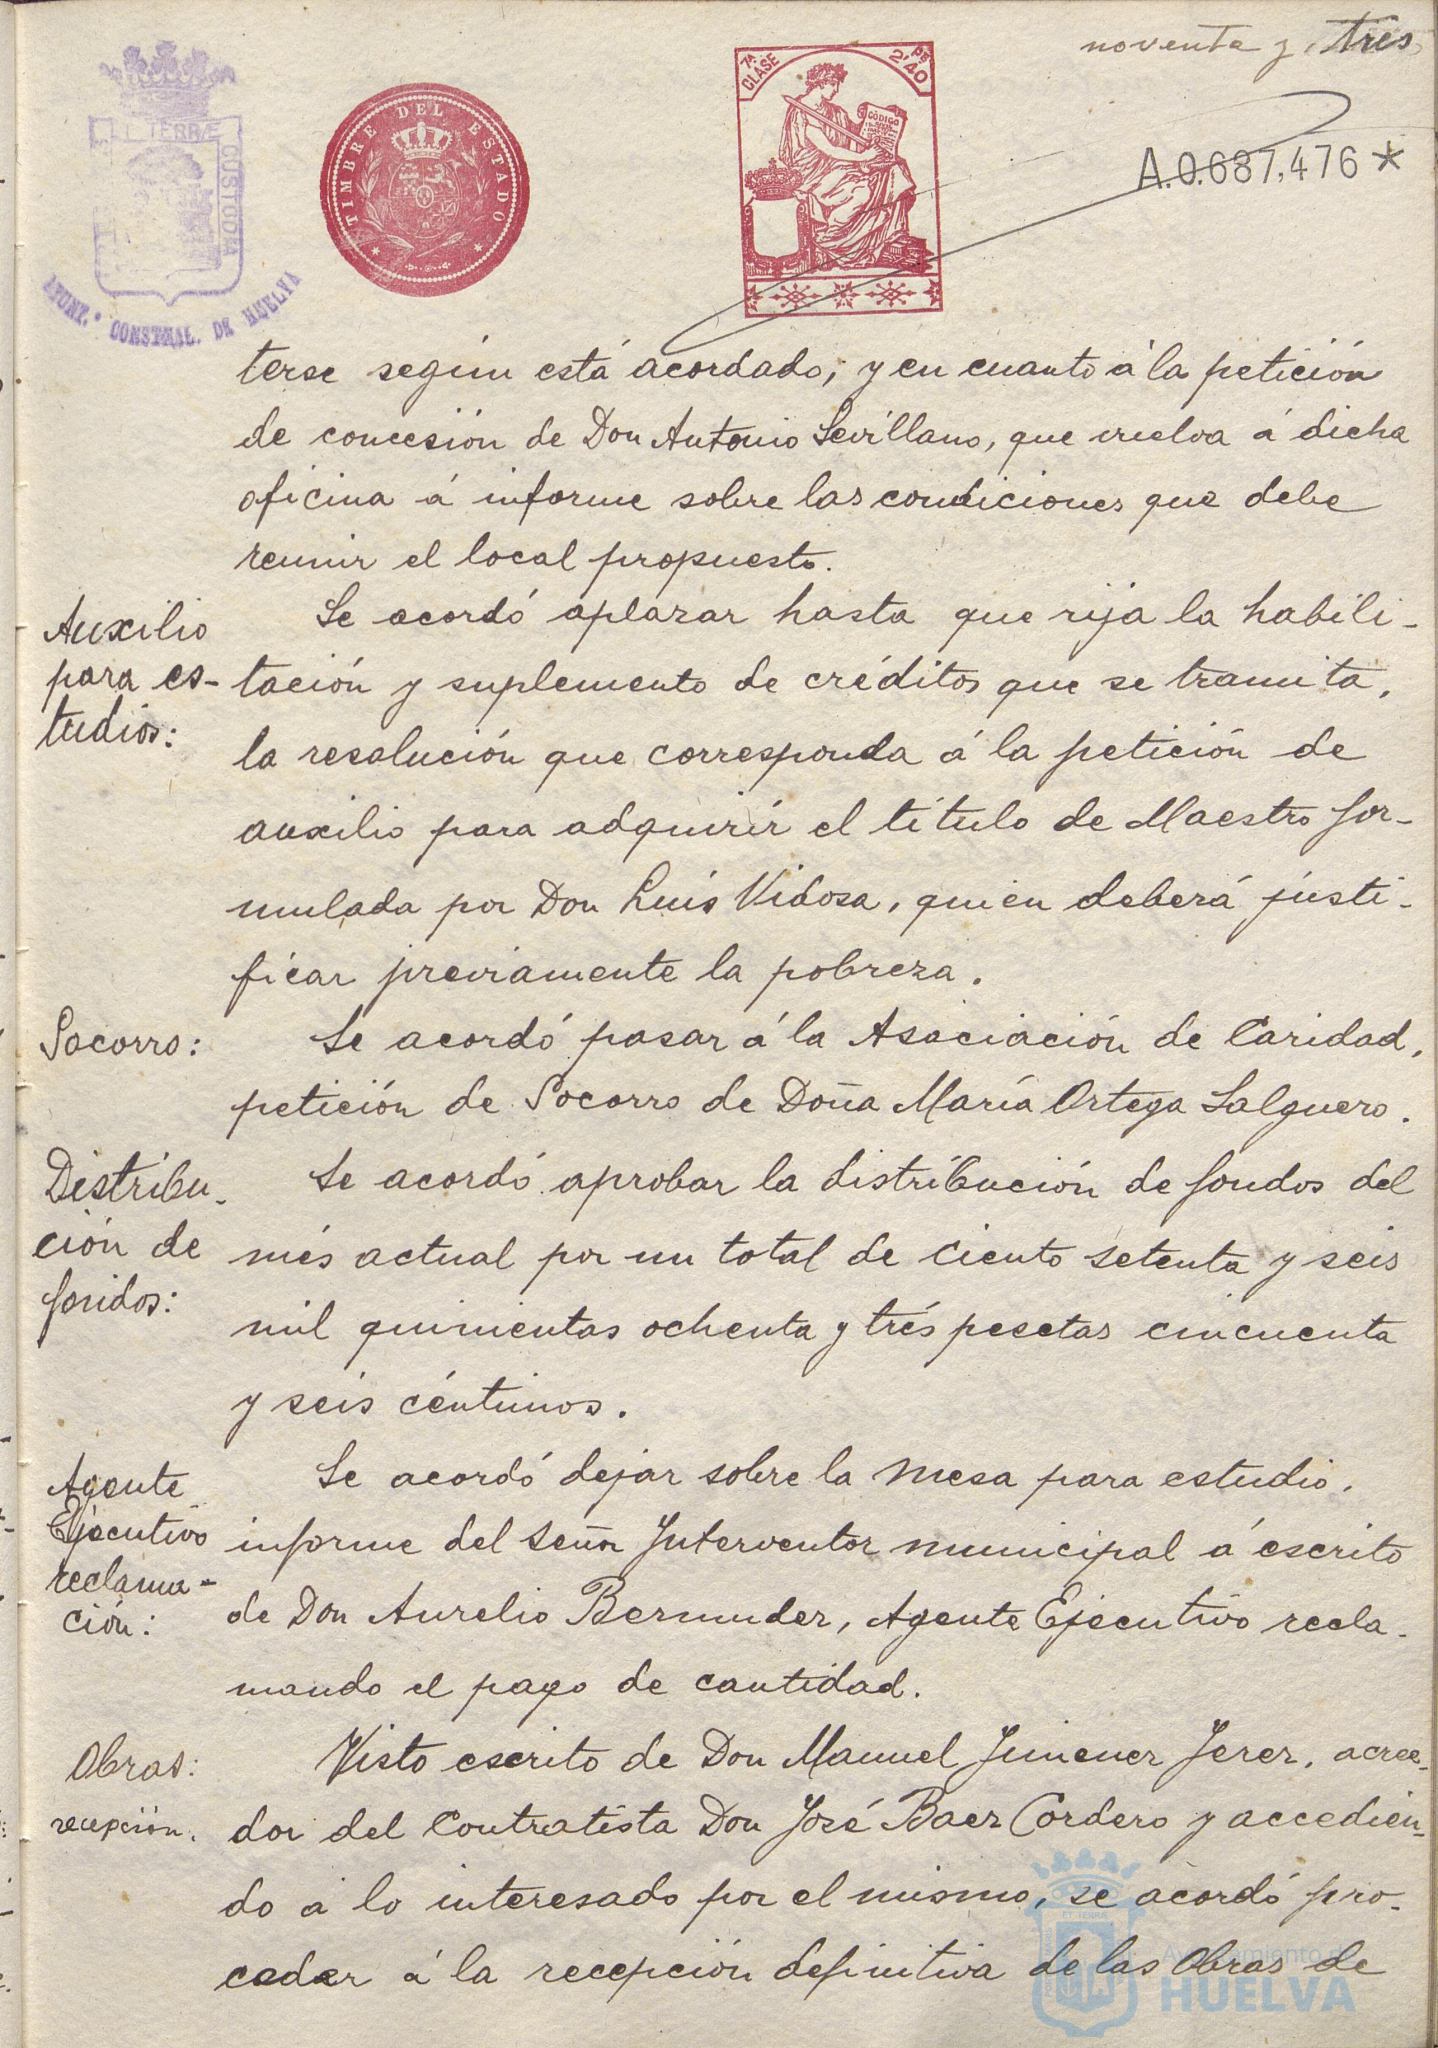 noventa y tres
TIMBRE DEL ESTADO
7ª CLASE
2'40
CÓDIGO
A.0.687,476 *
TERRÆ CUSTODIA
AYUNT. CONSTNAL. DE HUELVA
terse según está acordado; y en cuanto á la petición
de concesión de Don Antonio Sevillano, que vuelva á dicha
oficina á informe sobre las condiciones que debe
reunir el local propuesto.
Auxilio
para es-
tudios:
Se acordó aplazar hasta que rija la habili-
tación y suplemento de créditos que se tramita,
la resolución que corresponda á la petición de
auxilio para adquirir el título de Maestro for-
mulada por Don Luís Vidosa, quien deberá justi-
ficar previamente la pobreza.
Socorro:
Se acordó pasar á la Asociación de Caridad,
petición de Socorro de Doña María Ortega Salguero.
Distribu-
ción de
fondos:
Se acordó aprobar la distribución de fondos del
més actual por un total de ciento setenta y seis
mil quinientas ochenta y trés pesetas cincuenta
y seis céntimos.
Agente
Ejecutivo
reclama-
ción:
Se acordó dejar sobre la mesa para estudio,
informe del Señor Interventor municipal á escrito
de Don Aurelio Bermudez, Agente Ejecutivo recla-
mando el pago de cantidad.
Obras:
recepción.
Visto escrito de Don Manuel Jimenez Jerez, acree-
dor del Contratista Don José Baez Cordero y accedien-
do a lo interesado por el mismo, se acordó pro-
ceder á la recepción definitiva de las Obras de
Ayuntamiento de
HUELVA